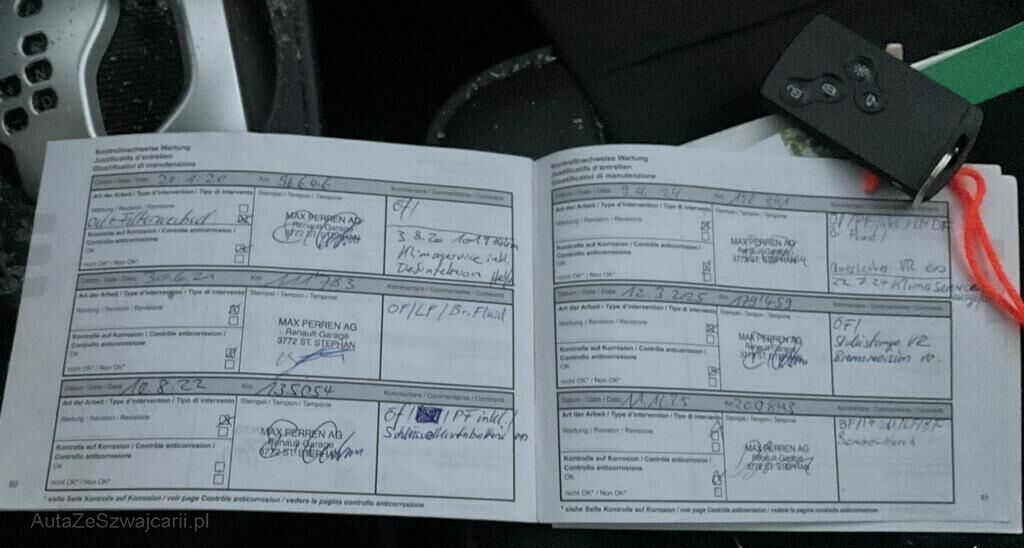 Kontrollnachweise Wartung
Justificatifs d'entretien
Giustificativi di manutenzione
Datum / Date / Data 22.1.20 Km 96646
Art der Arbeit / Type d'intervention / Tipo di intervento
Stempel / Tampon / Tampone
Kommentare / Commentaires / Commenti
Wartung / Revision / Revisione
Kontrolle auf Korrosion / Contrôle anticorrosion /
Controllo anticorrosione
OK
nicht OK* / Non OK*
MAX PERREN AG
Renault-Garage
3772 ST. STEPHAN
ÖF/
3.8.20
Klimaservice inkl.
Desinfektion
Datum / Date / Data 30.6.21 Km 111783
Art der Arbeit / Type d'intervention / Tipo di intervento
Stempel / Tampon / Tampone
Kommentare / Commentaires / Commenti
Wartung / Revision / Revisione
Kontrolle auf Korrosion / Contrôle anticorrosion /
Controllo anticorrosione
OK
nicht OK* / Non OK*
MAX PERREN AG
Renault-Garage
3772 ST. STEPHAN
ÖF/LF/Br.Fluid
Datum / Date / Data 10.8.22 Km 135054
Art der Arbeit / Type d'intervention / Tipo di intervento
Stempel / Tampon / Tampone
Kommentare / Commentaires / Commenti
Wartung / Revision / Revisione
Kontrolle auf Korrosion / Contrôle anticorrosion /
Controllo anticorrosione
OK
nicht OK* / Non OK*
MAX PERREN AG
Renault-Garage
3772 ST. STEPHAN
ÖF/ /PF inkl.
* siehe Seite Kontrolle auf Korrosion / voir page Contrôle anticorrosion / vedere la pagina controllo anticorrosione
80
Kontrollnachweise Wartung
Justificatifs d'entretien
Giustificativi di manutenzione
Datum / Date / Data 9.4.24 Km
Art der Arbeit / Type d'intervention / Tipo di intervento
Stempel / Tampon / Tampone
Kommentare / Commentaires / Commenti
Wartung / Revision / Revisione
Kontrolle auf Korrosion / Contrôle anticorrosion /
Controllo anticorrosione
OK
nicht OK* / Non OK*
MAX PERREN AG
Renault-Garage
3772 ST. STEPHAN
Br. Fluid
Datum / Date / Data 12.3.2025 Km
Art der Arbeit / Type d'intervention / Tipo di intervento
Stempel / Tampon / Tampone
Kommentare / Commentaires / Commenti
Wartung / Revision / Revisione
Kontrolle auf Korrosion / Contrôle anticorrosion /
Controllo anticorrosione
OK
nicht OK* / Non OK*
MAX PERREN AG
Renault-Garage
3772 ST. STEPHAN
ÖF/
Datum / Date / Data Km 209843
Art der Arbeit / Type d'intervention / Tipo di intervento
Stempel / Tampon / Tampone
Kommentare / Commentaires / Commenti
Wartung / Revision / Revisione
Kontrolle auf Korrosion / Contrôle anticorrosion /
Controllo anticorrosione
OK
nicht OK* / Non OK*
MAX PERREN AG
Renault-Garage
3772 ST. STEPHAN
* siehe Seite Kontrolle auf Korrosion / voir page Contrôle anticorrosion / vedere la pagina controllo anticorrosione
81
AutaZeSzwajcarii.pl